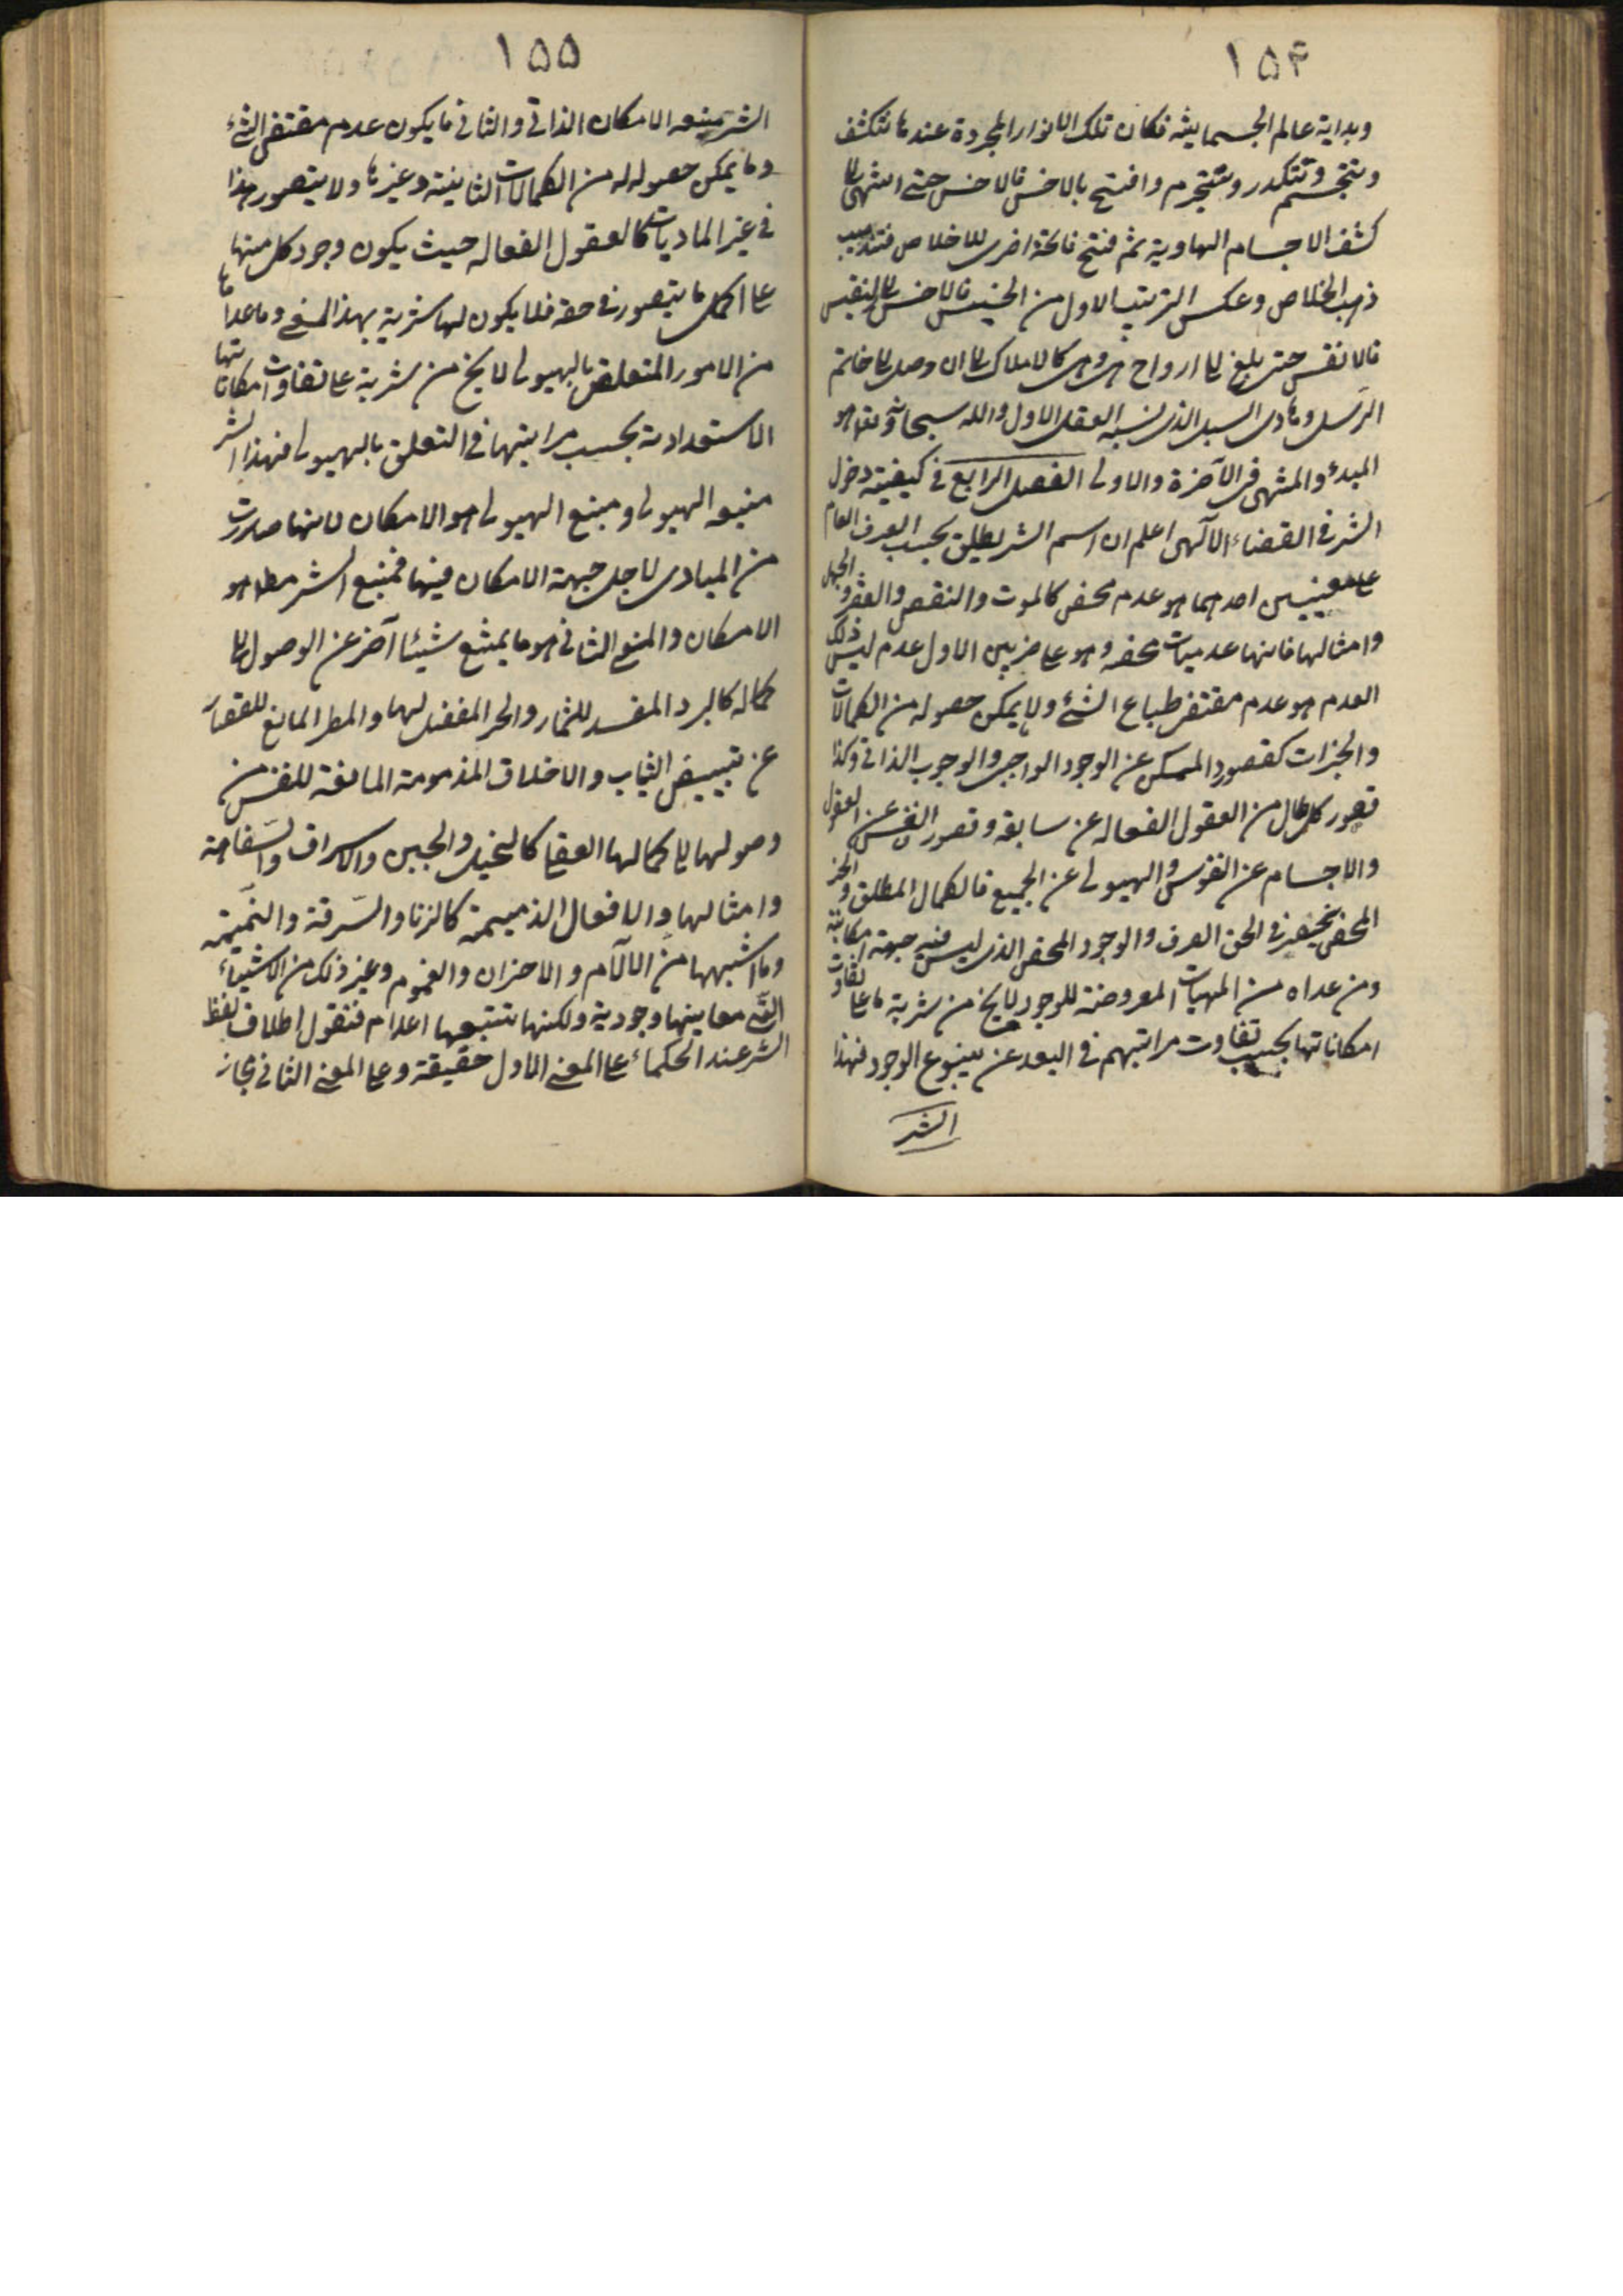 ١٥۴
وبداية عالم الجسمانية فكان تلك الانوار المجردة عندما تتكثف
وتتجسم وتتكدر وتتجرم وافتتح بالاخس فالاخس حتى انتهى الى
كثف الاجسام الهاوية ثم فتح فاتحة اخرى للاخلاص
ذهب الخلاص وعكس الترتيب الاول من الخسيس فالاخس الى النفيس
فالانفس حتى بلغ الى ارواح هى وهى كالاملاك الى ان وصل الى خاتم
الرسل وهادى السبل الذى نسبه العقل الاول والله سبحانه وتعا هو
المبدئ والمنتهى فى الآخرة والاولى الفصل الرابع فى كيفية دخول
الشر فى القضاء الآلهى اعلم ان اسم الشر يطلق بحسب العرف العام
على معنيين احدهما هو عدم محض كالموت والنقص والفقر والجهل
وامثالها فانها عدميات محضه وهو على ضربين الاول عدم ليس ذلك
العدم هو عدم مقتضى طباع الشئ ولا يمكن حصوله من الكمالات
والخيرات كقصور الممكن عن الوجود الواجبى والوجوب الذاتى وكذا
قصور كل تال من العقول الفعاله عن سابقه وقصور النفس عن العقول
والاجسام عن النفوس والهيولى عن الجميع فالكمال المطلق والخير
المحض ينحصر فى الحق الصرف والوجود المحض الذى ليس فيه جهة امكانية
ومن عداه من المهيات المعروضة للوجود لا يخ من شرية ما على تفاوت
امكاناتها بحسب تفاوت مراتبهم فى البعد عن ينبوع الوجود فهذا
الشر
١٥٥
الشر منبعه الامكان الذاتى والثانى ما يكون عدم مقتضى الشئ
وما يمكن حصوله له من الكمالات الثانية وغيرها ولا يتصور هذا
فى غير الماديات كالعقول الفعاله حيث يكون وجود كل منها
على اكمل ما يتصور فى حقه فلا يكون لها شرية بهذا المعنى وما عداها
من الامور المتعلقة بالهيولى لا يخ من شرية على تفاوت امكاناتها
الاستعدادية بحسب مراتبها فى التعلق بالهيولى فهذا الشر
منبعه الهيولى ومنبع الهيولى هو الامكان لانها صدرت
من المبادى لاجل جهة الامكان فيها فمنبع الشر مط هو
الامكان والمعنى الثانى هو ما يمنع شيئا آخر عن الوصول الى
كماله كالبرد المفسد للثمار والحر المعفن لها والمطر المانع للقصار
عن تبييض الثياب والاخلاق المذمومة المانعة للنفس من
وصولها الى كمالها العقلى كالبخل والجبن والاسراف والسفاهة
وامثالها والافعال الذميمة كالزنا والسّرقة والنميمة
وما اشبهها من الآلآم والاحزان والغموم وغير ذلك من الاشياء
التى معانيها وجودية ولكنها تتبعها اعدام فنقول اطلاق لفظ
الشر عند الحكماء على المعنى الاول حقيقة وعلى المعنى الثانى مجاز